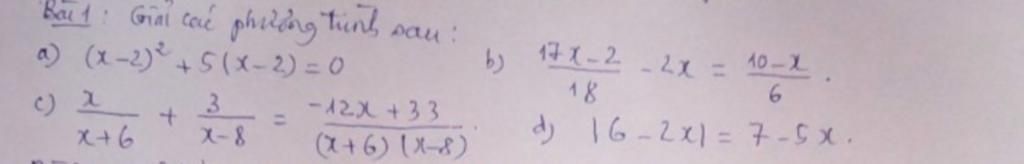 Bài 1: Giải các phương trình sau:
a) (x-2)² + 5(x-2) = 0 b) (17x-2)/18 - 2x = (10-x)/6.
c) x/(x+6) + 3/(x-8) = (-12x+33)/((x+6)(x-8)). d) |6-2x| = 7-5x.